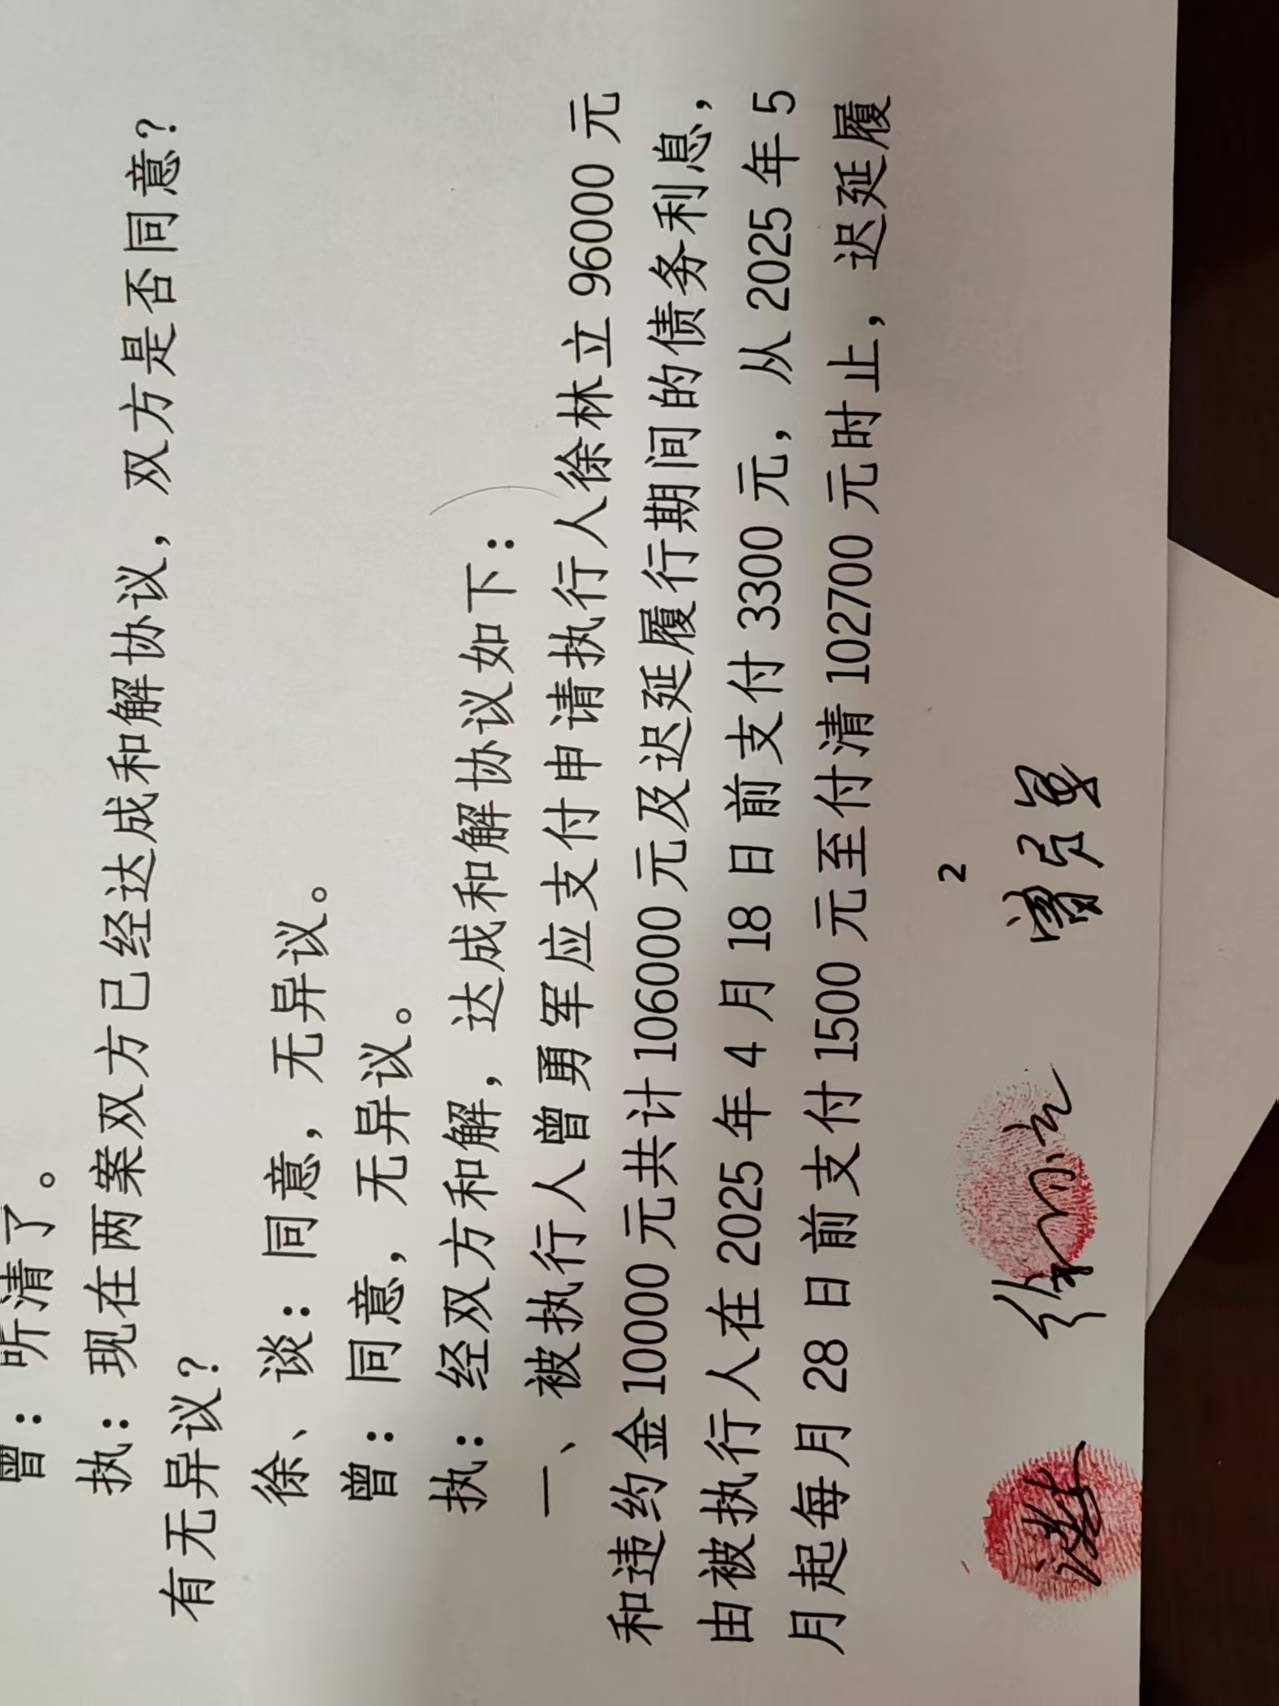 曾：听清了。
执：现在两案双方已经达成和解协议，双方是否同意？
有无异议？
徐、谈：同意，无异议。
曾：同意，无异议。
执：经双方和解，达成和解协议如下：
一、被执行人曾勇军应支付申请执行人徐林立 96000 元
和违约金 10000 元共计 106000 元及迟延履行期间的债务利息，
由被执行人在 2025 年 4 月 18 日前支付 3300 元，从 2025 年 5
月起每月 28 日前支付 1500 元至付清 102700 元时止，迟延履
2
徐林立 曾勇军